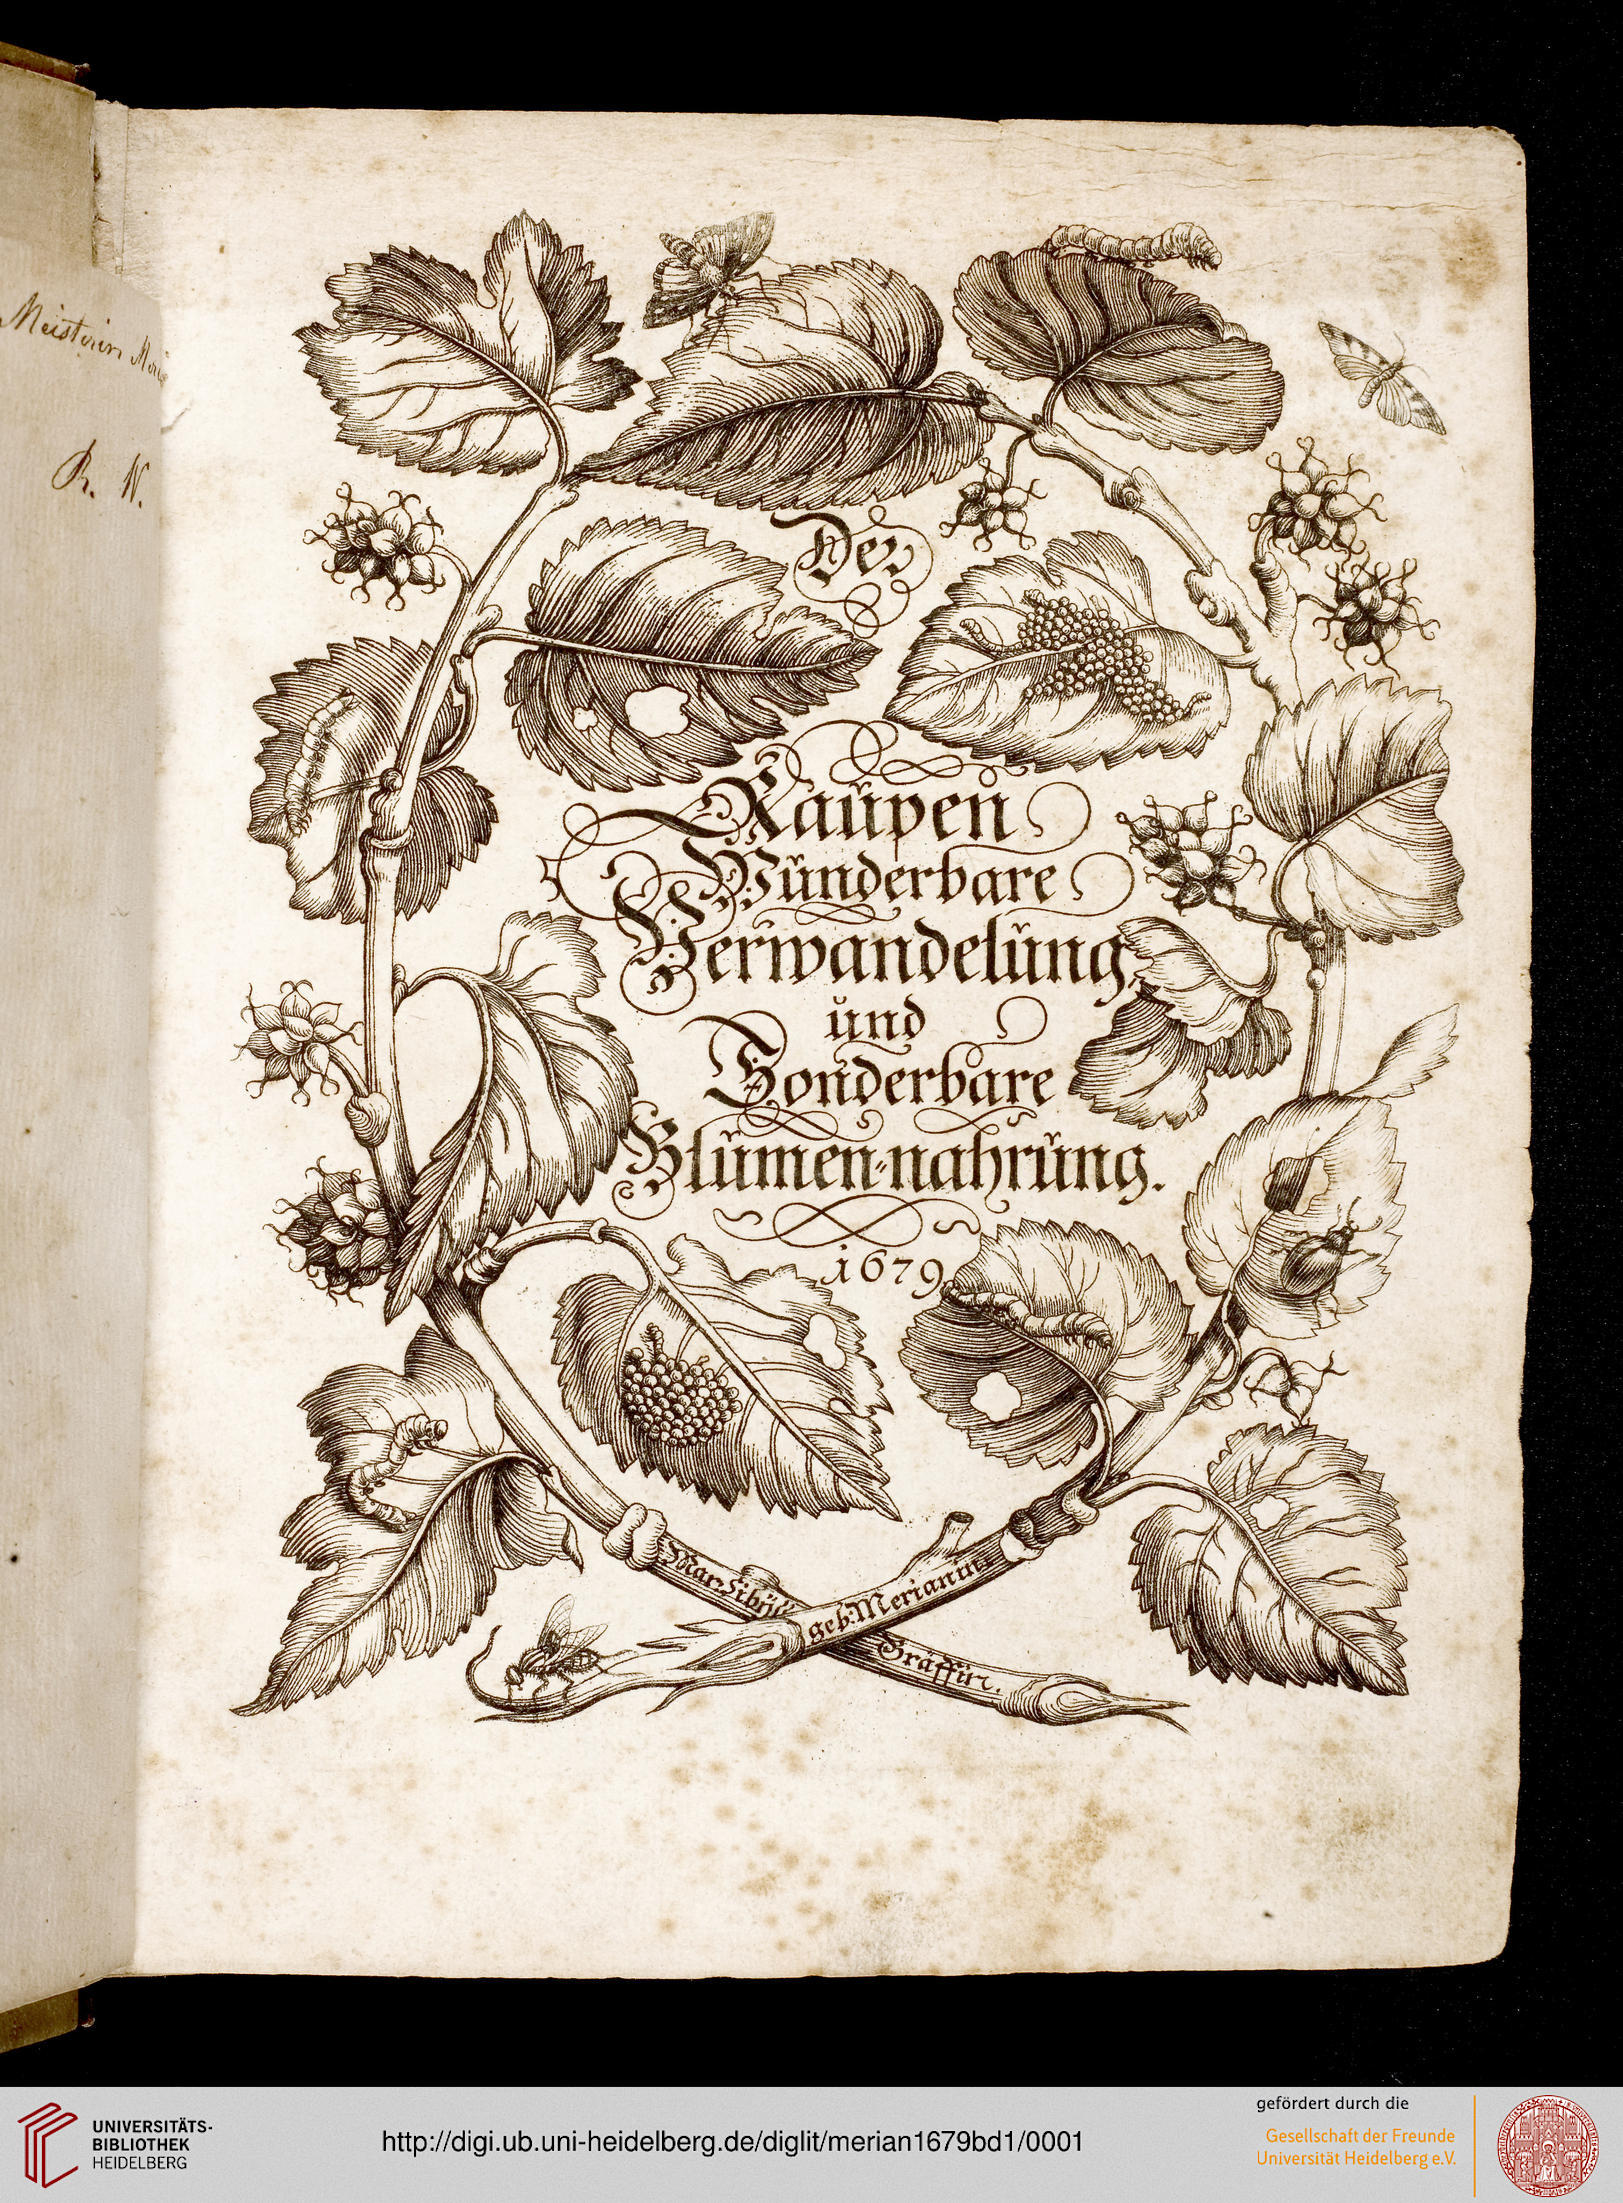 Meisterin
R. N.
Der
Raupen
Wunderbare
Verwandelung,
und
Sonderbare
Blumen=nahrung.
1679
Mar. Sibÿl
geb. Merianin.
Gräffin.
UNIVERSITÄTS-
BIBLIOTHEK
HEIDELBERG
http://digi.ub.uni-heidelberg.de/diglit/merian1679bd1/0001
gefördert durch die
Gesellschaft der Freunde
Universität Heidelberg e.V.